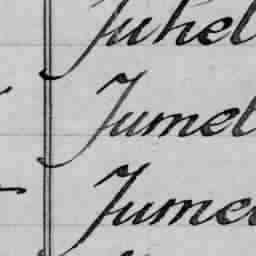 Juhel
Jumel
Jumea